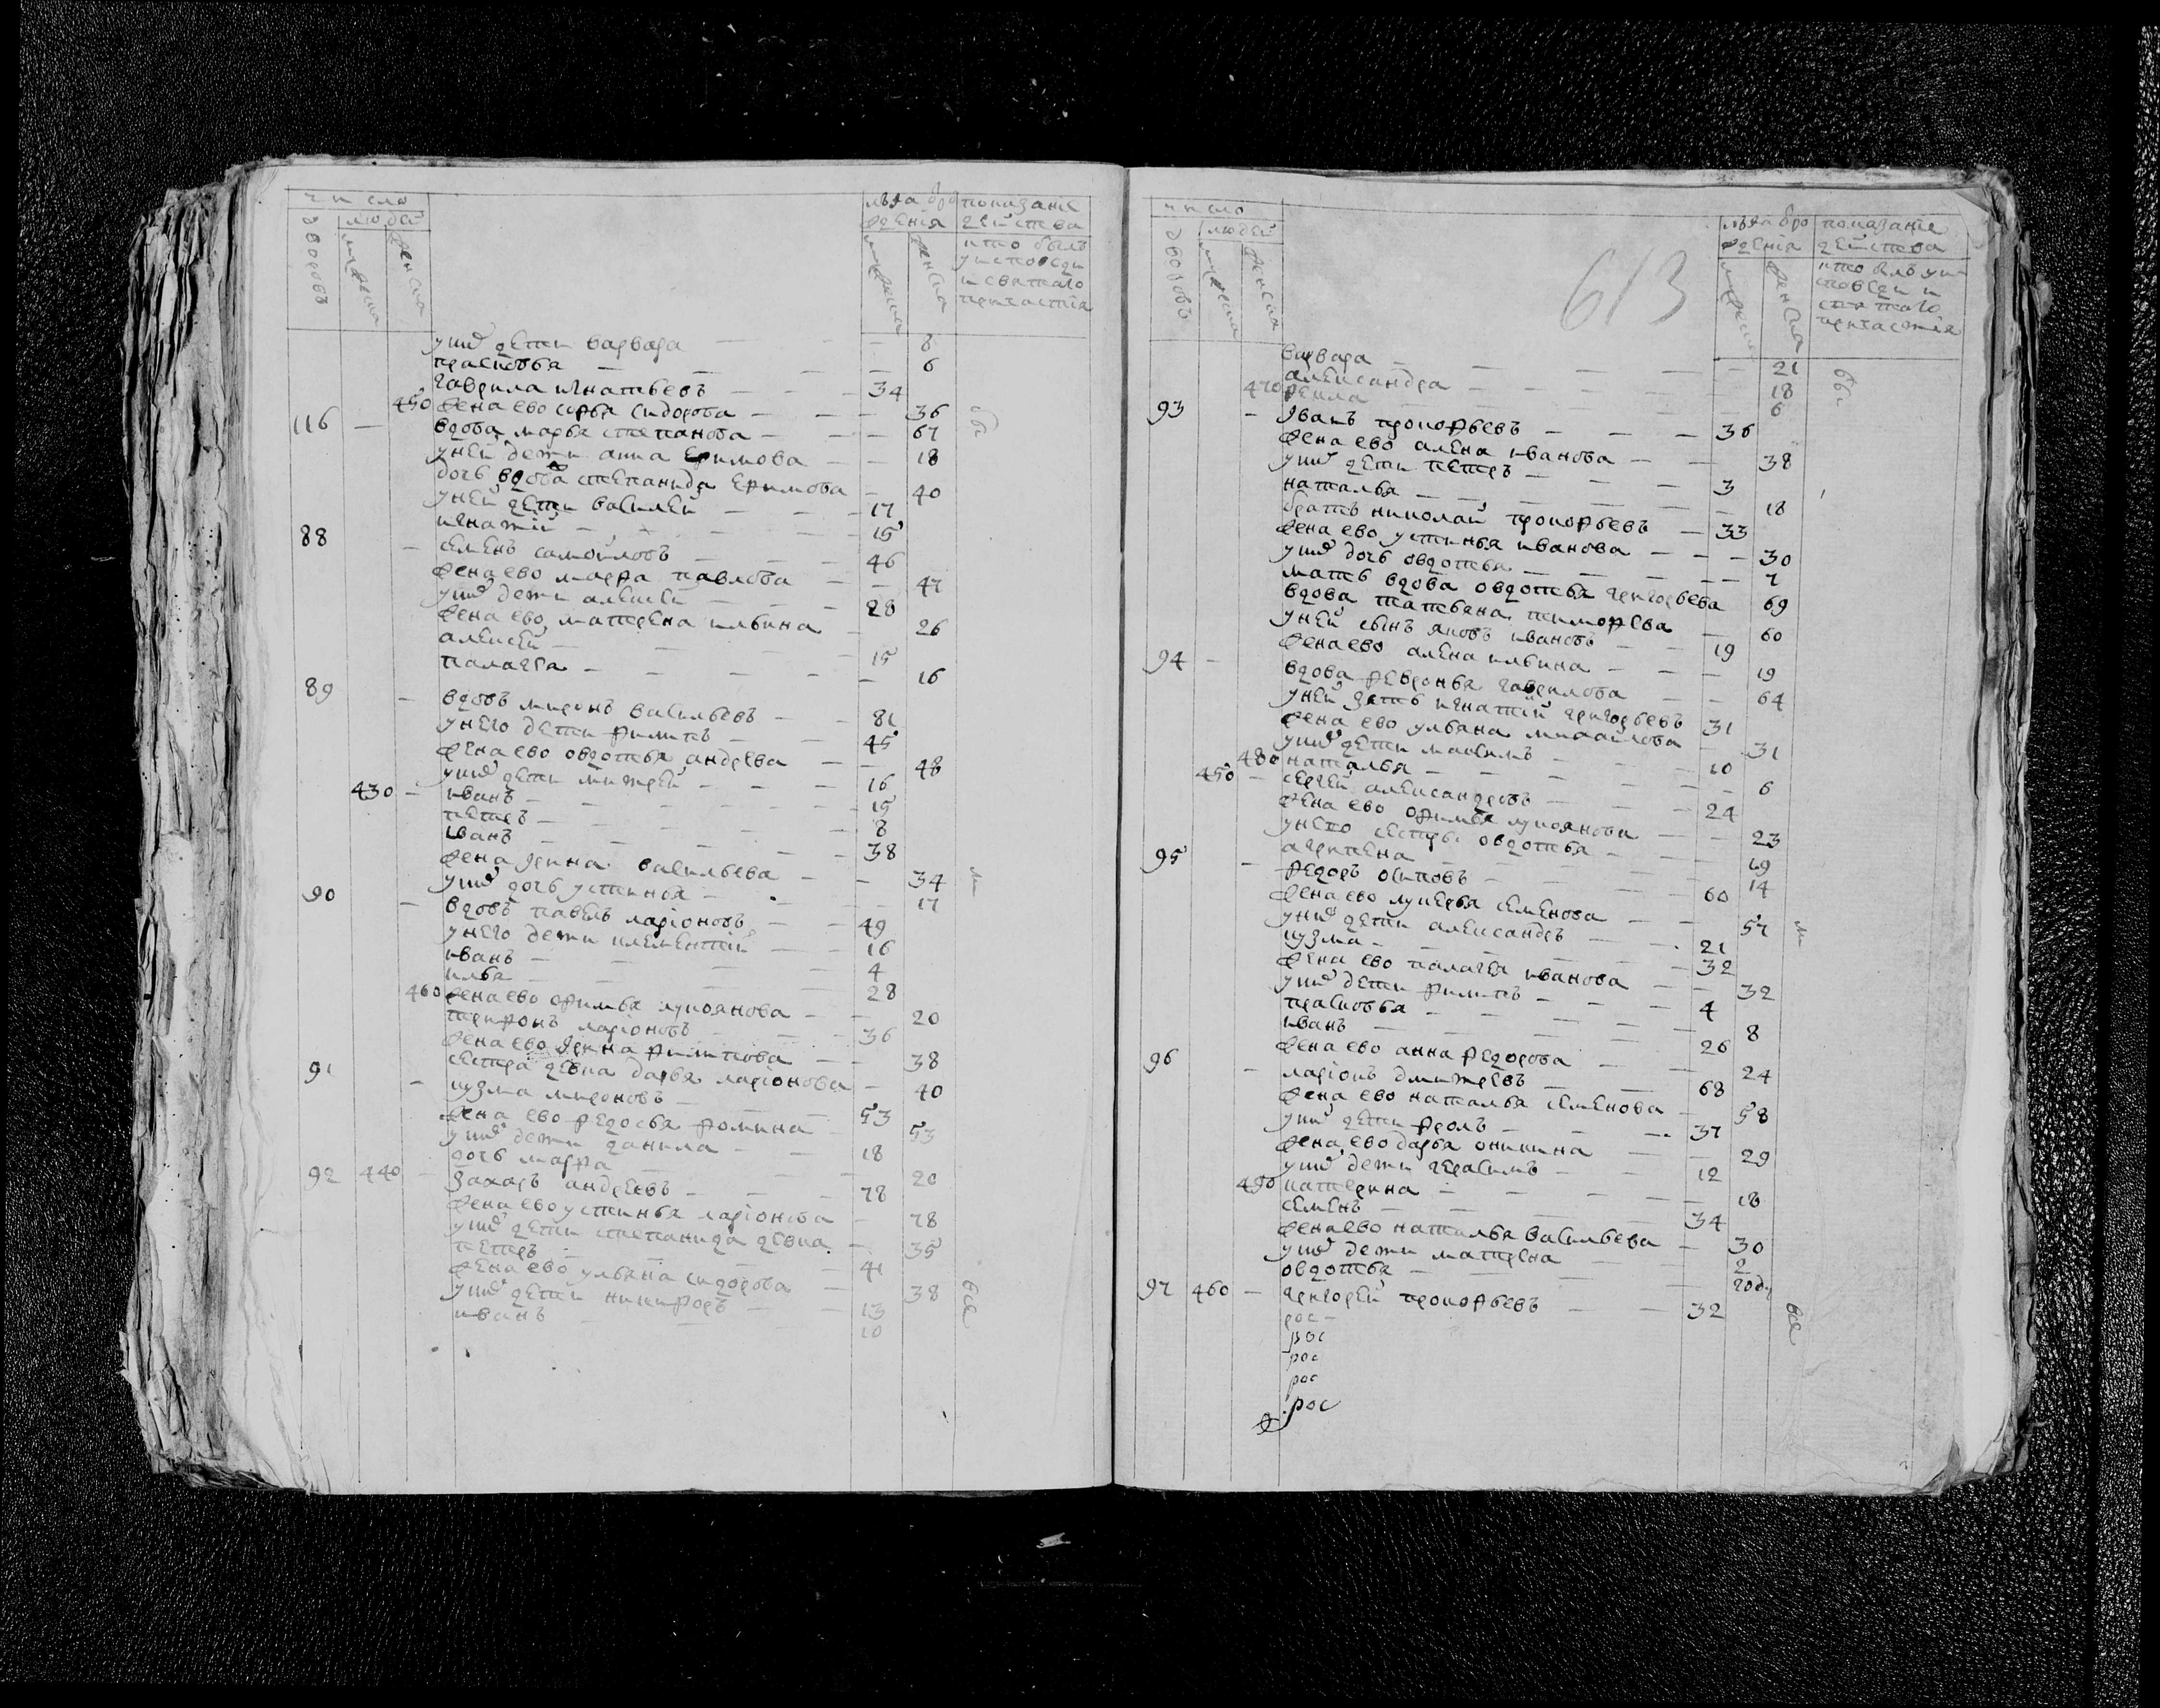 число
людей
дворовъ
мужеска
женска
лѣта от рождения
мужеска
женска
показание действа
кто былъ у исповеди и святаго причастия
у них дети варвара — 8
прасковья — 6
гаврила игнатьевъ — 34
450 жена ево софья сидорова — 36
116 — вдова марья степанова — 67
у ней дети анна ефимова — 18
дочь вдова степанида ефимова — 40
у ней дети василей — 17
игнатий — 15
88 — семенъ самойловъ — 46
жена ево марфа павлова — 47
у них дети алексей — 28
жена ево матрена ильина — 26
алексей — 15
палагея — 16
89 — вдовъ миронъ васильевъ — 81
у него дети филипъ — 45
жена ево овдотья андрева — 48
у них дети митрей — 16
430 — иванъ — 15
петръ — 8
иванъ — 38
жена ирина васильева — 34
у них дочь устинья — 17
90 — вдовъ павелъ ларионовъ — 49
у него дети климентий — 16
иванъ — 4
илья — 28
460 жена ево офимья лукоянова — 20
трифонъ ларионовъ — 36
жена ево ирина филипова — 38
сестра девка дарья ларионова — 40
91 — кузма мироновъ — 53
жена ево федосья фомина — 53
у них дети данила — 18
дочь марфа — 20
92 440 — захаръ андреевъ — 78
жена ево устинья ларионова — 78
у них дети степанида девка — 35
петръ — 41
жена ево ульяна сидорова — 38
у них дети никифоръ — 13
иванъ — 10
число
людей
дворовъ
мужеска
женска
613
лѣта от рождения
мужеска
женска
показание действа
кто былъ у исповеди и святаго причастия
варвара — 21
александра — 18
470 фекла — 6
93 — иванъ прокофьевъ — 36
жена ево алена иванова — 38
у них дети петръ — 3
наталья — 18
братъ николай прокофьевъ — 33
жена ево устинья иванова — 30
у них дочь овдотья — 7
мать вдова овдотья григорьева 69
вдова татьяна тимофева — 60
у ней сынъ яковъ ивановъ — 19
жена ево алена ильина — 19
94 — вдова февронья гаврилова — 64
у ней зять игнатий григорьевъ 31
жена ево ульяна михайлова — 31
у них дети максимъ — 10
480 наталья — 6
450 — сергей александровъ — 24
жена ево офимья лукоянова — 23
у него сестры овдотья — 19
агрипена — 14
95 — федоръ осиповъ — 60
жена ево лукерья семенова — 57
у них дети александръ — 21
кузма — 32
жена ево палагея иванова — 32
у них дети филипъ — 4
прасковья — 8
иванъ — 26
жена ево анна федорова — 24
96 — ларионъ дмитревъ — 68
жена ево наталья семенова — 58
у них дети фролъ — 37
жена ево дарья оникина — 29
у них дети герасимъ — 12
490 катерина — 18
семенъ — 34
жена ево наталья васильева — 30
у них дети матрена — 2
овдотья — году
97 460 — григорей прокофьевъ — 32
рос
рос
рос
рос
рос